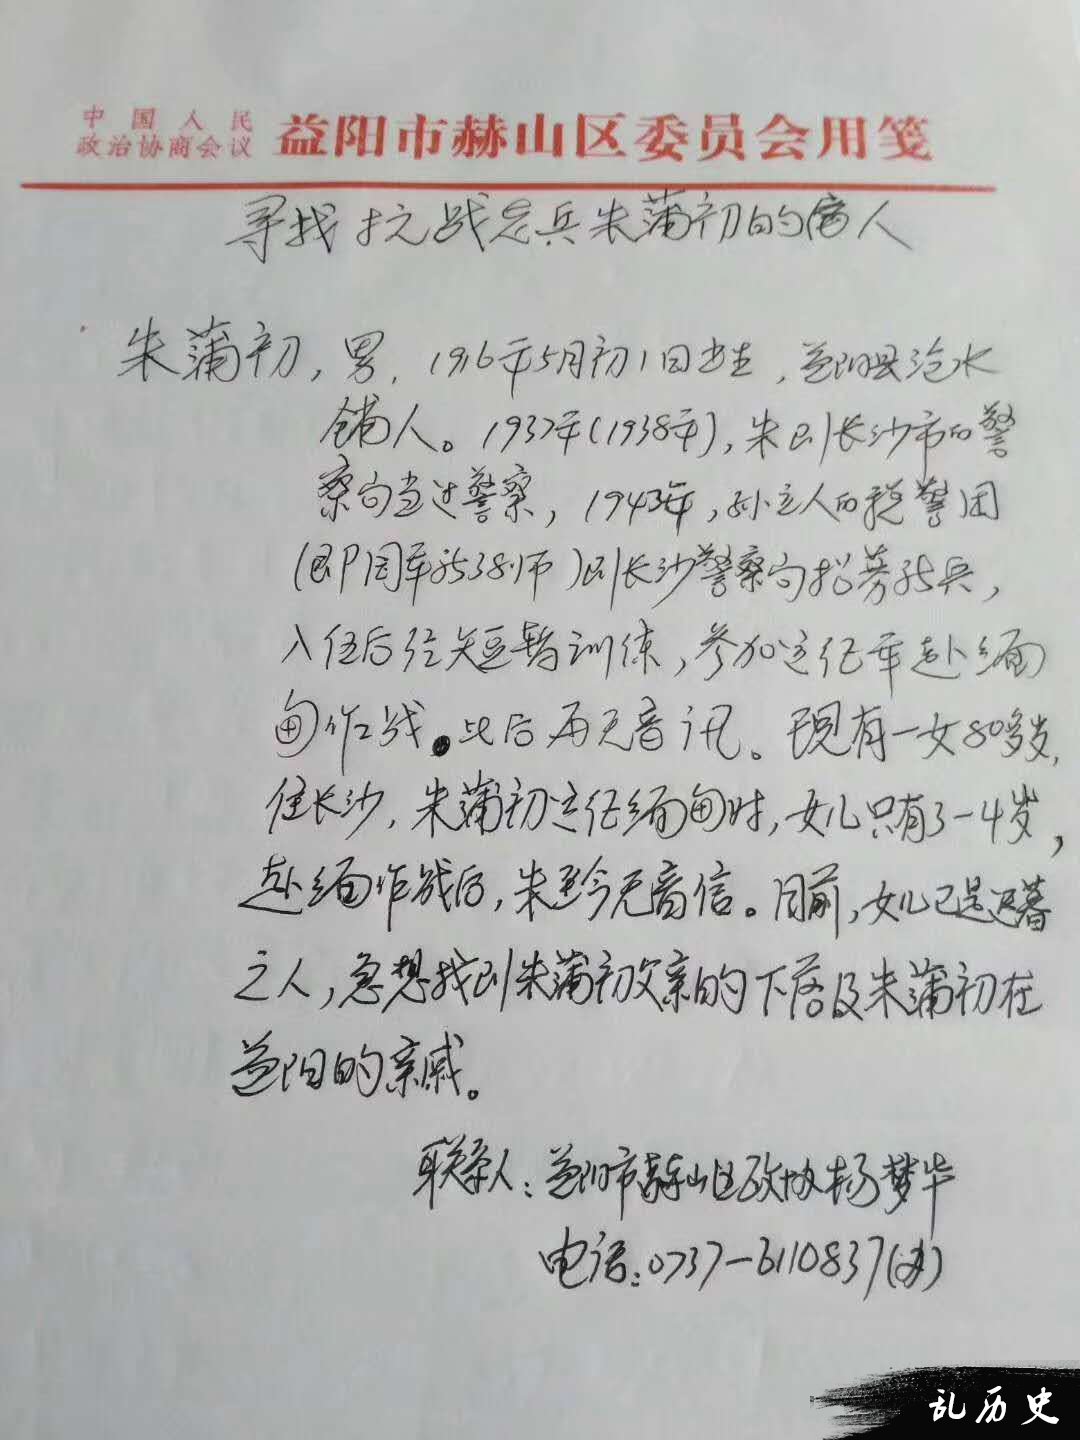 中国人民
政治协商会议 益阳市赫山区委员会用笺
寻找抗战老兵朱蒲初的家人
朱蒲初,男,1916年5月初1日出生,益阳县沧水
铺人。1937年(1938年),朱到长沙市的警
察局当过警察,1943年,孙立人的税警团
(即国军新38师)到长沙警察局招募新兵,
入伍后经短暂训练,参加远征军赴缅
甸作战。此后再无音讯。现有一女80多岁,
住长沙,朱蒲初远征缅甸时,女儿只有3-4岁,
赴缅作战后,朱至今无音信。目前,女儿已是迟暮
之人,急想找到朱蒲初父亲的下落及朱蒲初在
益阳的亲戚。
联系人:益阳市赫山区政协杨梦华
电话:0737-3110837(办)
乱历史